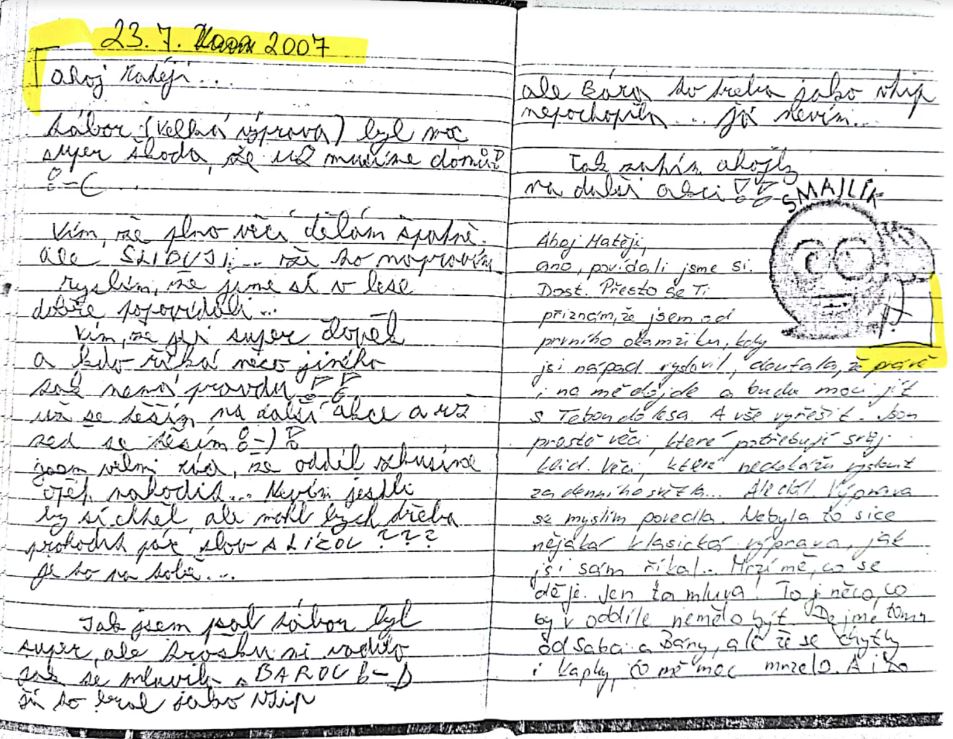 23. 7. 2007
ahoj Matěji...
tábor (velká výprava) byl moc
super škoda, že už musíme domů
Vím, že plno věcí dělám špatně.
ale SLIBUJI... že to napravím
myslím, že jsme si v lese
dobře popovídali...
Vím, že jsi super člověk
a kdo říká něco jiného
tak nemá pravdu
už se těším na další akce a už
teď se těším
jsem velmi ráda, že oddíl zkusíme
opět nahodit... Nevím jestli
by si chtěl, ale mohl bych třeba
prohodit pár slov s LÍZOU ???
je to na tobě...
Jak jsem psal tábor byl
super, ale trošku mi vadilo
jak se mluvilo s BAROU
ší to bral jako vtip
ale Bára to třeba jako vtip
nepochopila... já nevím...
Tak zatím ahojky
na další akci
SMAJLÍK
Ahoj Matěji,
ano, povídali jsme si.
Dost. Přesto se Ti
přiznám, že jsem od
prvního okamžiku, kdy
jsi nápad vyslovil, doufala, že právě
i na mě dojde a budu moci jít
s Tebou do lesa. A vše vyřešit. Jsou
prostě věci, které potřebují svůj
klid. Věci, které nedokážu vyslovit
za denního světla... Ale dál. Výprava
se myslím povedla. Nebyla to sice
nějaká klasická výprava, jak
jsi sám říkal... Mrzí mě, co se
děje. Jen ta mluva! To je něco, co
by v oddíle nemělo být. Dejme tomu
od Saba a Báry, ale že se chytly
i Kapky, to mě moc mrzelo. A i to